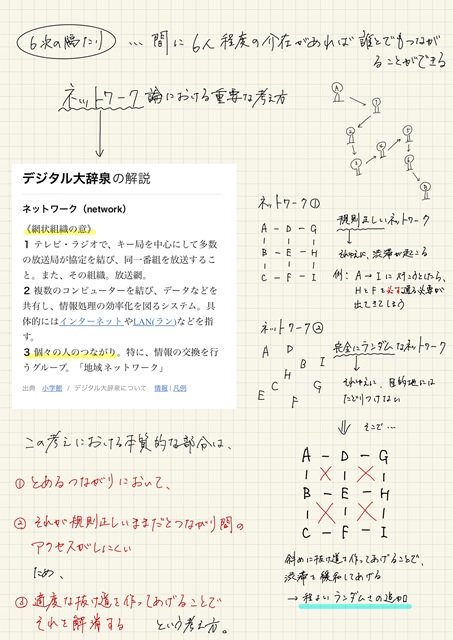 6次の隔たり … 間に6人程度の介在があれば誰とでもつながることができる
ネットワーク論における重要な考え方
デジタル大辞泉の解説
ネットワーク（network）
《網状組織の意》
1 テレビ・ラジオで、キー局を中心にして多数
の放送局が協定を結び、同一番組を放送するこ
と。また、その組織。放送網。
2 複数のコンピューターを結び、データなどを
共有し、情報処理の効率化を図るシステム。具
体的にはインターネットやLAN(ラン)などを指
す。
3 個々の人のつながり。特に、情報の交換を行
うグループ。「地域ネットワーク」
出典 小学館 / デジタル大辞泉について 情報 | 凡例
この考えにおける本質的な部分は、
① とあるつながりにおいて、
② それが規則正しいままだとつながり間の
アクセスがしにくい
ため、
③ 適度な抜け道を作ってあげることで
それを解消する という考え方。
A
1
2
3
4
5
6
B
ネットワーク①
A － D － G
B － E － H
C － F － I
規則正しいネットワーク
ゆえに、渋滞が起こる
例：A → I に行こうとしたら、
HとFを必ず通る必要が
出てきてしまう
ネットワーク②
A D
B I
H
E C G
F
完全にランダムなネットワーク
それゆえに、目的地には
たどりつけない
そこで…
A － D － G
B － E － H
C － F － I
斜めに抜け道を作ってあげることで、
渋滞を緩和してあげる
→ 程よいランダムさの追加